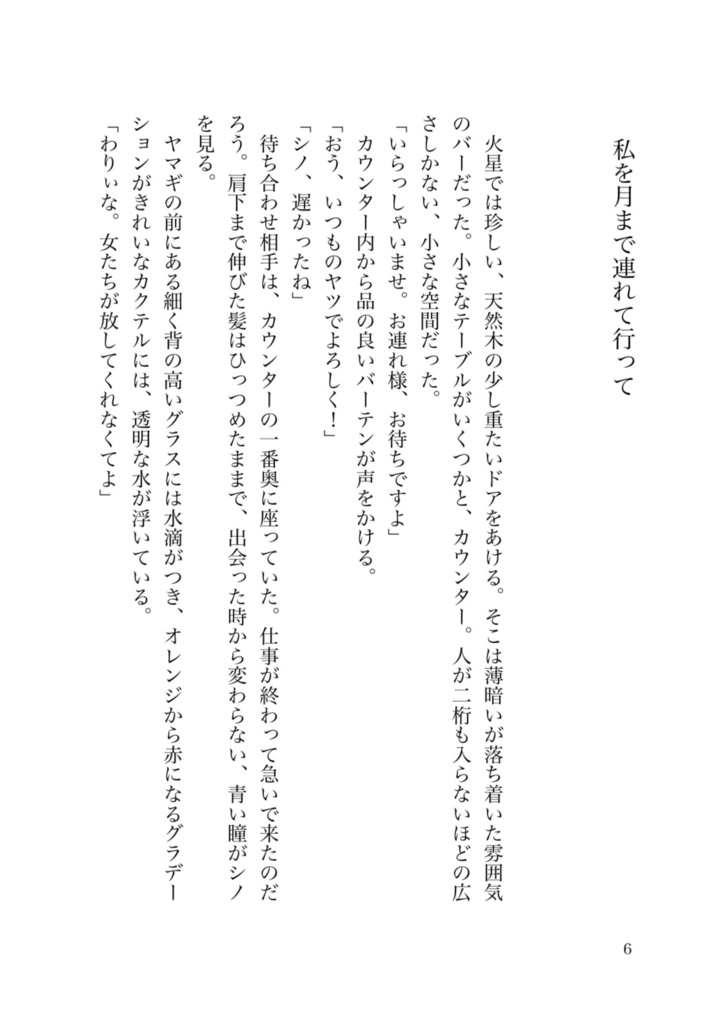 私を月まで連れて行って
　火星では珍しい、天然木の少し重たいドアをあける。そこは薄暗いが落ち着いた雰囲気
のバーだった。小さなテーブルがいくつかと、カウンター。人が二桁も入らないほどの広
さしかない、小さな空間だった。
「いらっしゃいませ。お連れ様、お待ちですよ」
　カウンター内から品の良いバーテンが声をかける。
「おう、いつものヤツでよろしく！」
「シノ、遅かったね」
　待ち合わせ相手は、カウンターの一番奥に座っていた。仕事が終わって急いで来たのだ
ろう。肩下まで伸びた髪はひっつめたままで、出会った時から変わらない、青い瞳がシノ
を見る。
　ヤマギの前にある細く背の高いグラスには水滴がつき、オレンジから赤になるグラデー
ションがきれいなカクテルには、透明な氷が浮いている。
「わりぃな。女たちが放してくれなくてよ」
6